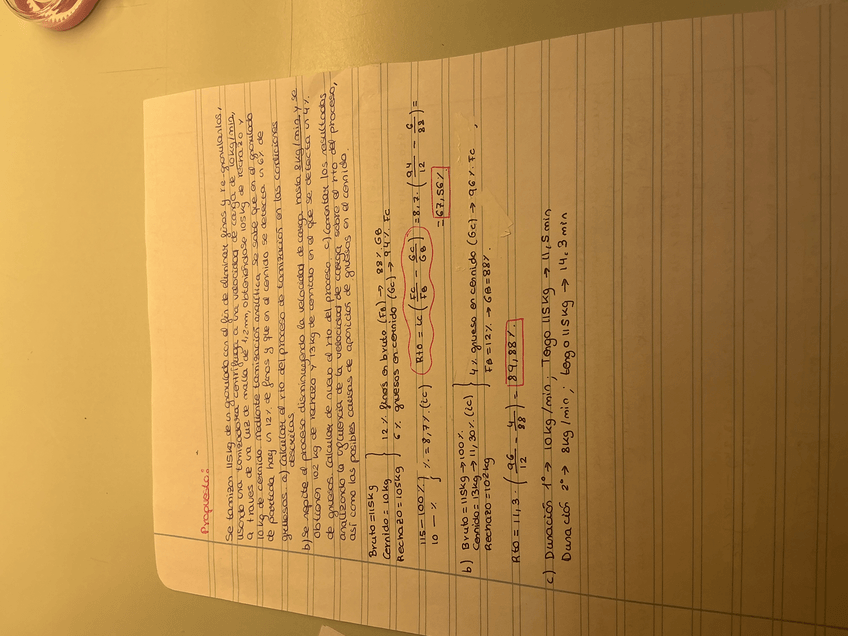 Propuesto:
Se tamizan 115kg de un granulado con el fin de eliminar finos y re-granularlos,
usando una tamizadora centrífuga a una velocidad de carga de 10kg/min,
a través de una luz de malla de 1,2mm, obteniéndose 105kg de rechazo y
10 kg de cernido. Mediante tamización analítica se sabe que en el granulado
de partida hay un 12% de finos y que en el cernido se detecta un 6% de
gruesos. a) Calcular el rto. del proceso de tamización en las condiciones
descritas
b) Se repite el proceso disminuyendo la velocidad de carga hasta 8kg/min y se
obtienen 102 kg de rechazo y 13kg de cernido en el que se detecta un 4%
de gruesos. Calcular de nuevo el rto del proceso. c) Comentar los resultados
analizando la influencia de la velocidad de carga sobre el rto del proceso,
así como las posibles causas de aparición de gruesos en el cernido.
Bruto=115kg
Cernido=10kg
Rechazo=105kg
12% finos en bruto (FB) → 88% GB
6% gruesos en cernido (GC) → 94% Fc
115-100%
10 - %
% = 8,7% (LC)
Rto = LC (Fc/FB - Gc/GB) = 8,7 · (94/12 - 6/88) =
= 67,56%
b) Bruto=115kg → 100%
Cernido=13kg → 11,30% (LC)
Rechazo=102kg
4% grueso en cernido (Gc) → 96% Fc
FB=12% → GB=88%
Rto = 11,3 · (96/12 - 4/88) = 89,88%
c) Duración 1º → 10kg/min, Tengo 115kg → 11,5 min
Duración 2º → 8kg/min; tengo 115kg → 14,3 min